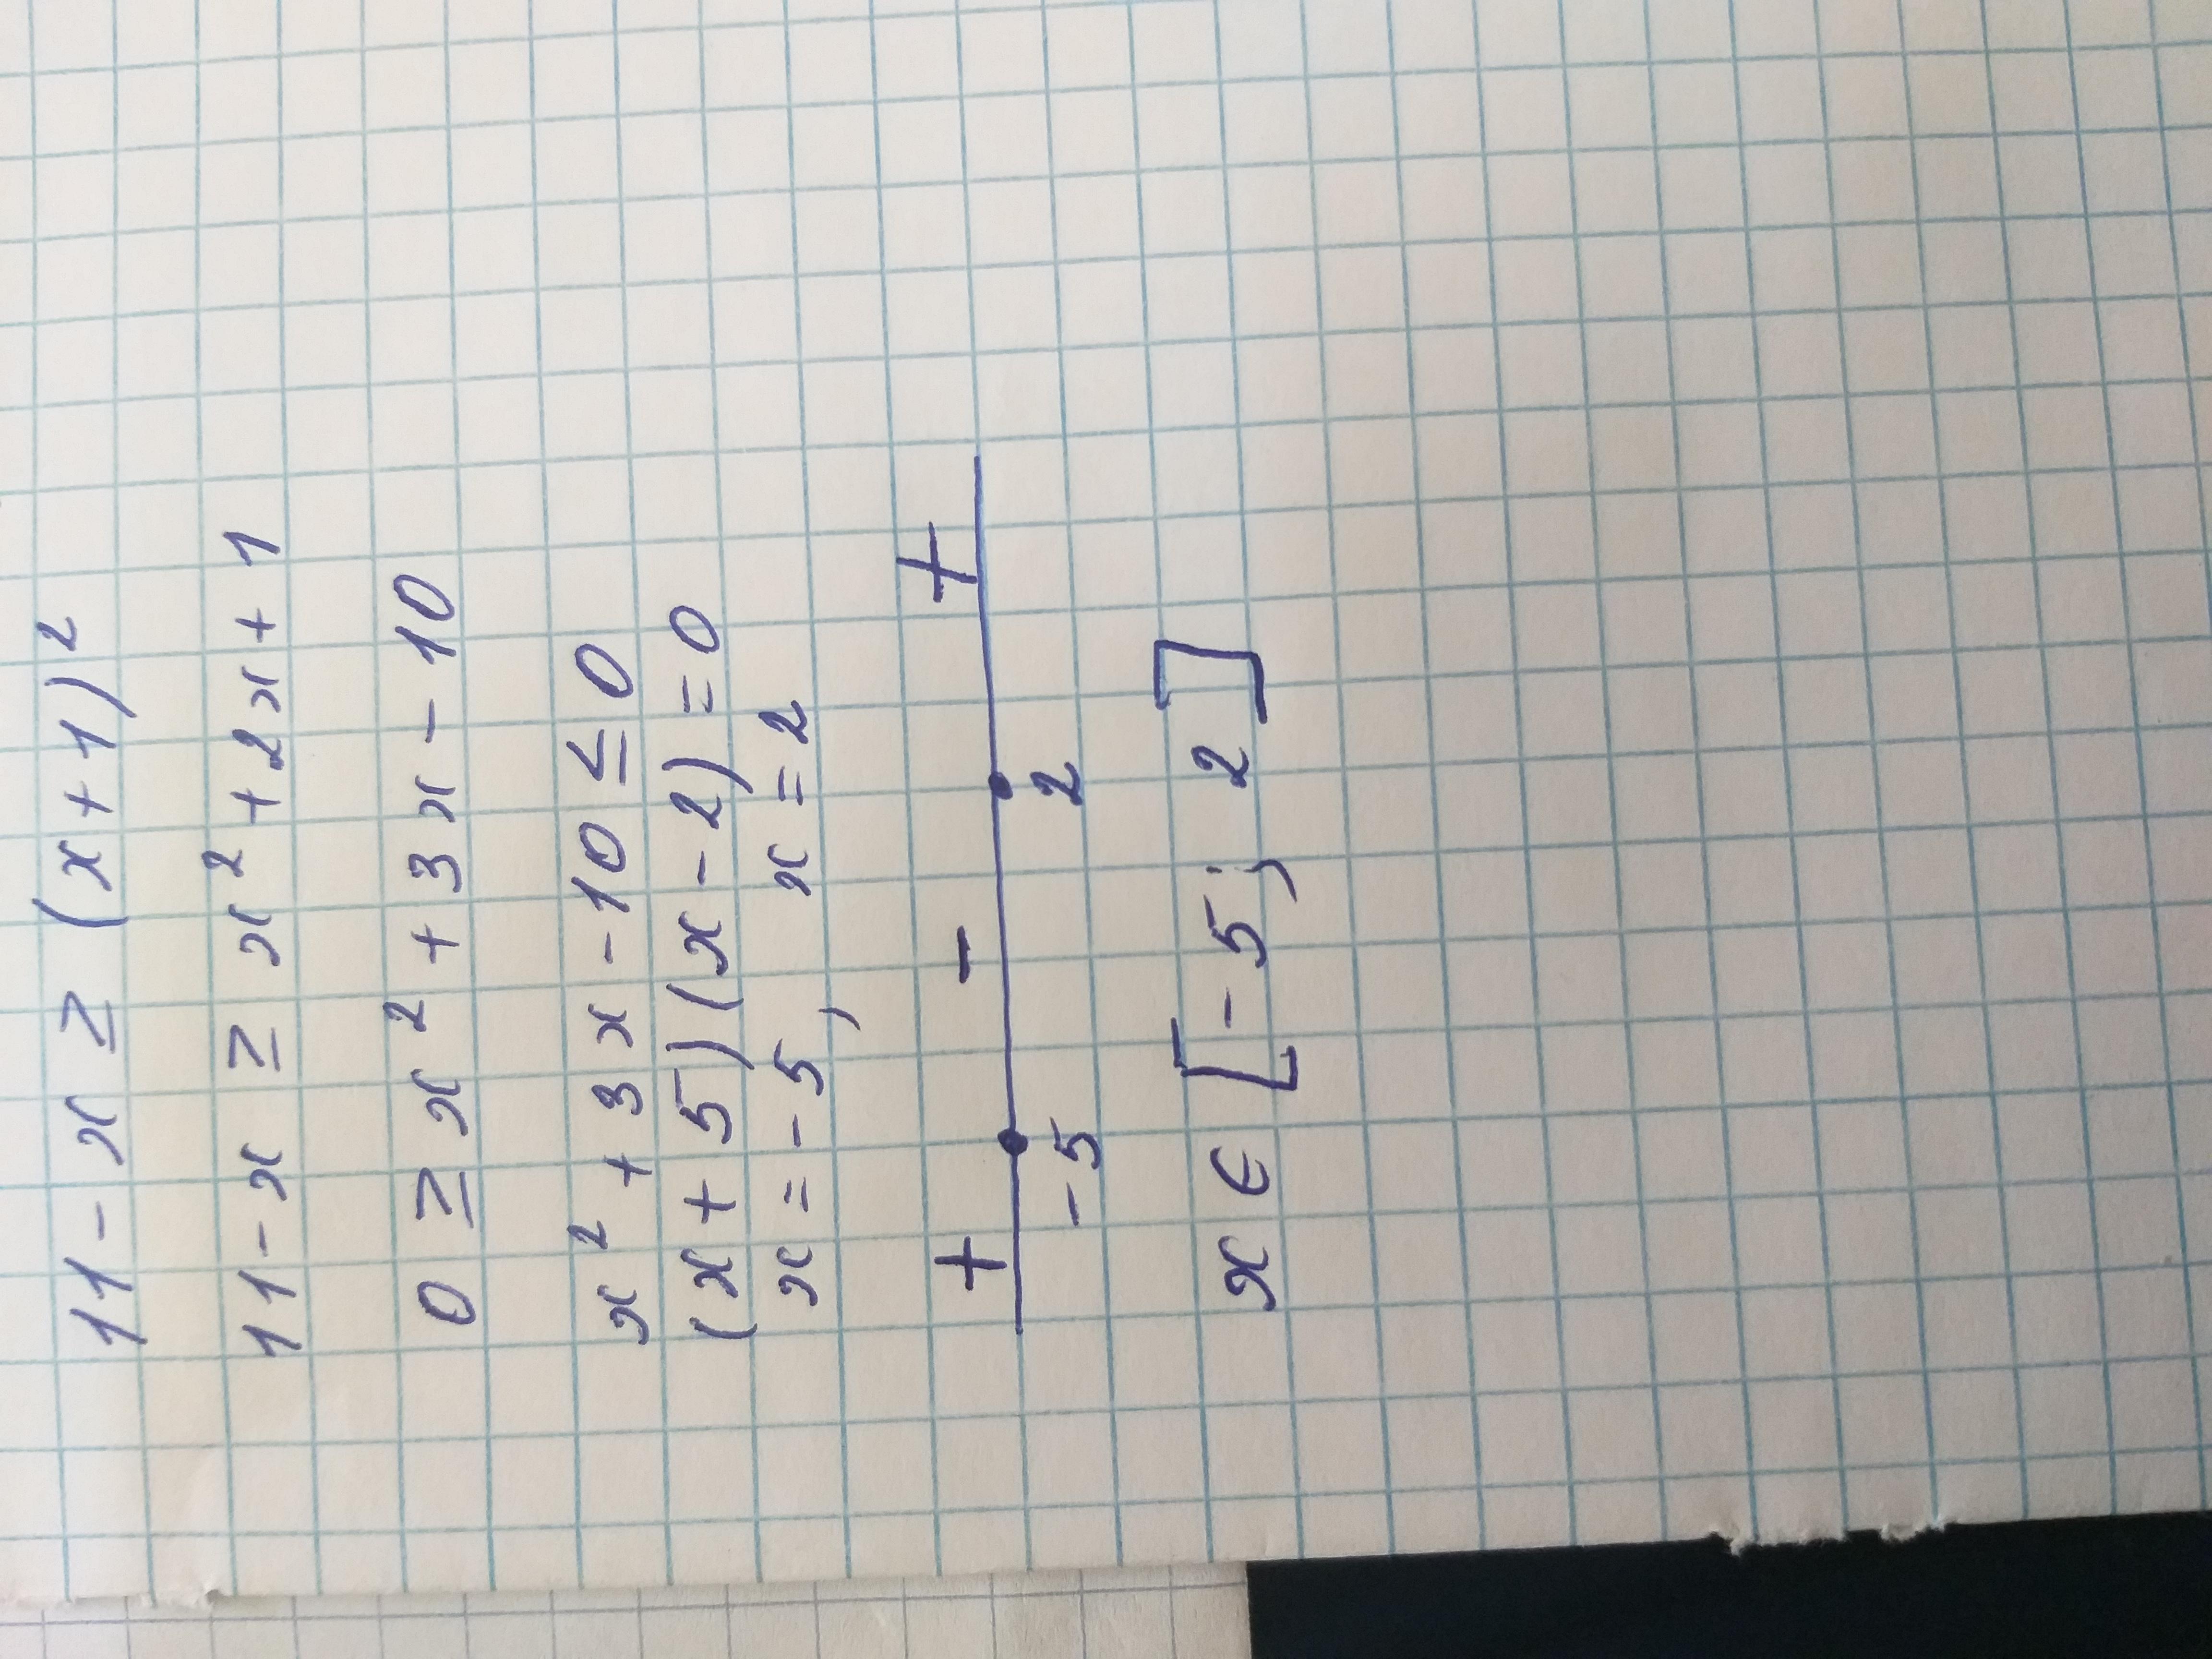 11 - x ≥ (x + 1)²
11 - x ≥ x² + 2x + 1
0 ≥ x² + 3x - 10
x² + 3x - 10 ≤ 0
(x + 5)(x - 2) = 0
x = -5, x = 2
+ - +
-5 2
x ∈ [-5; 2]